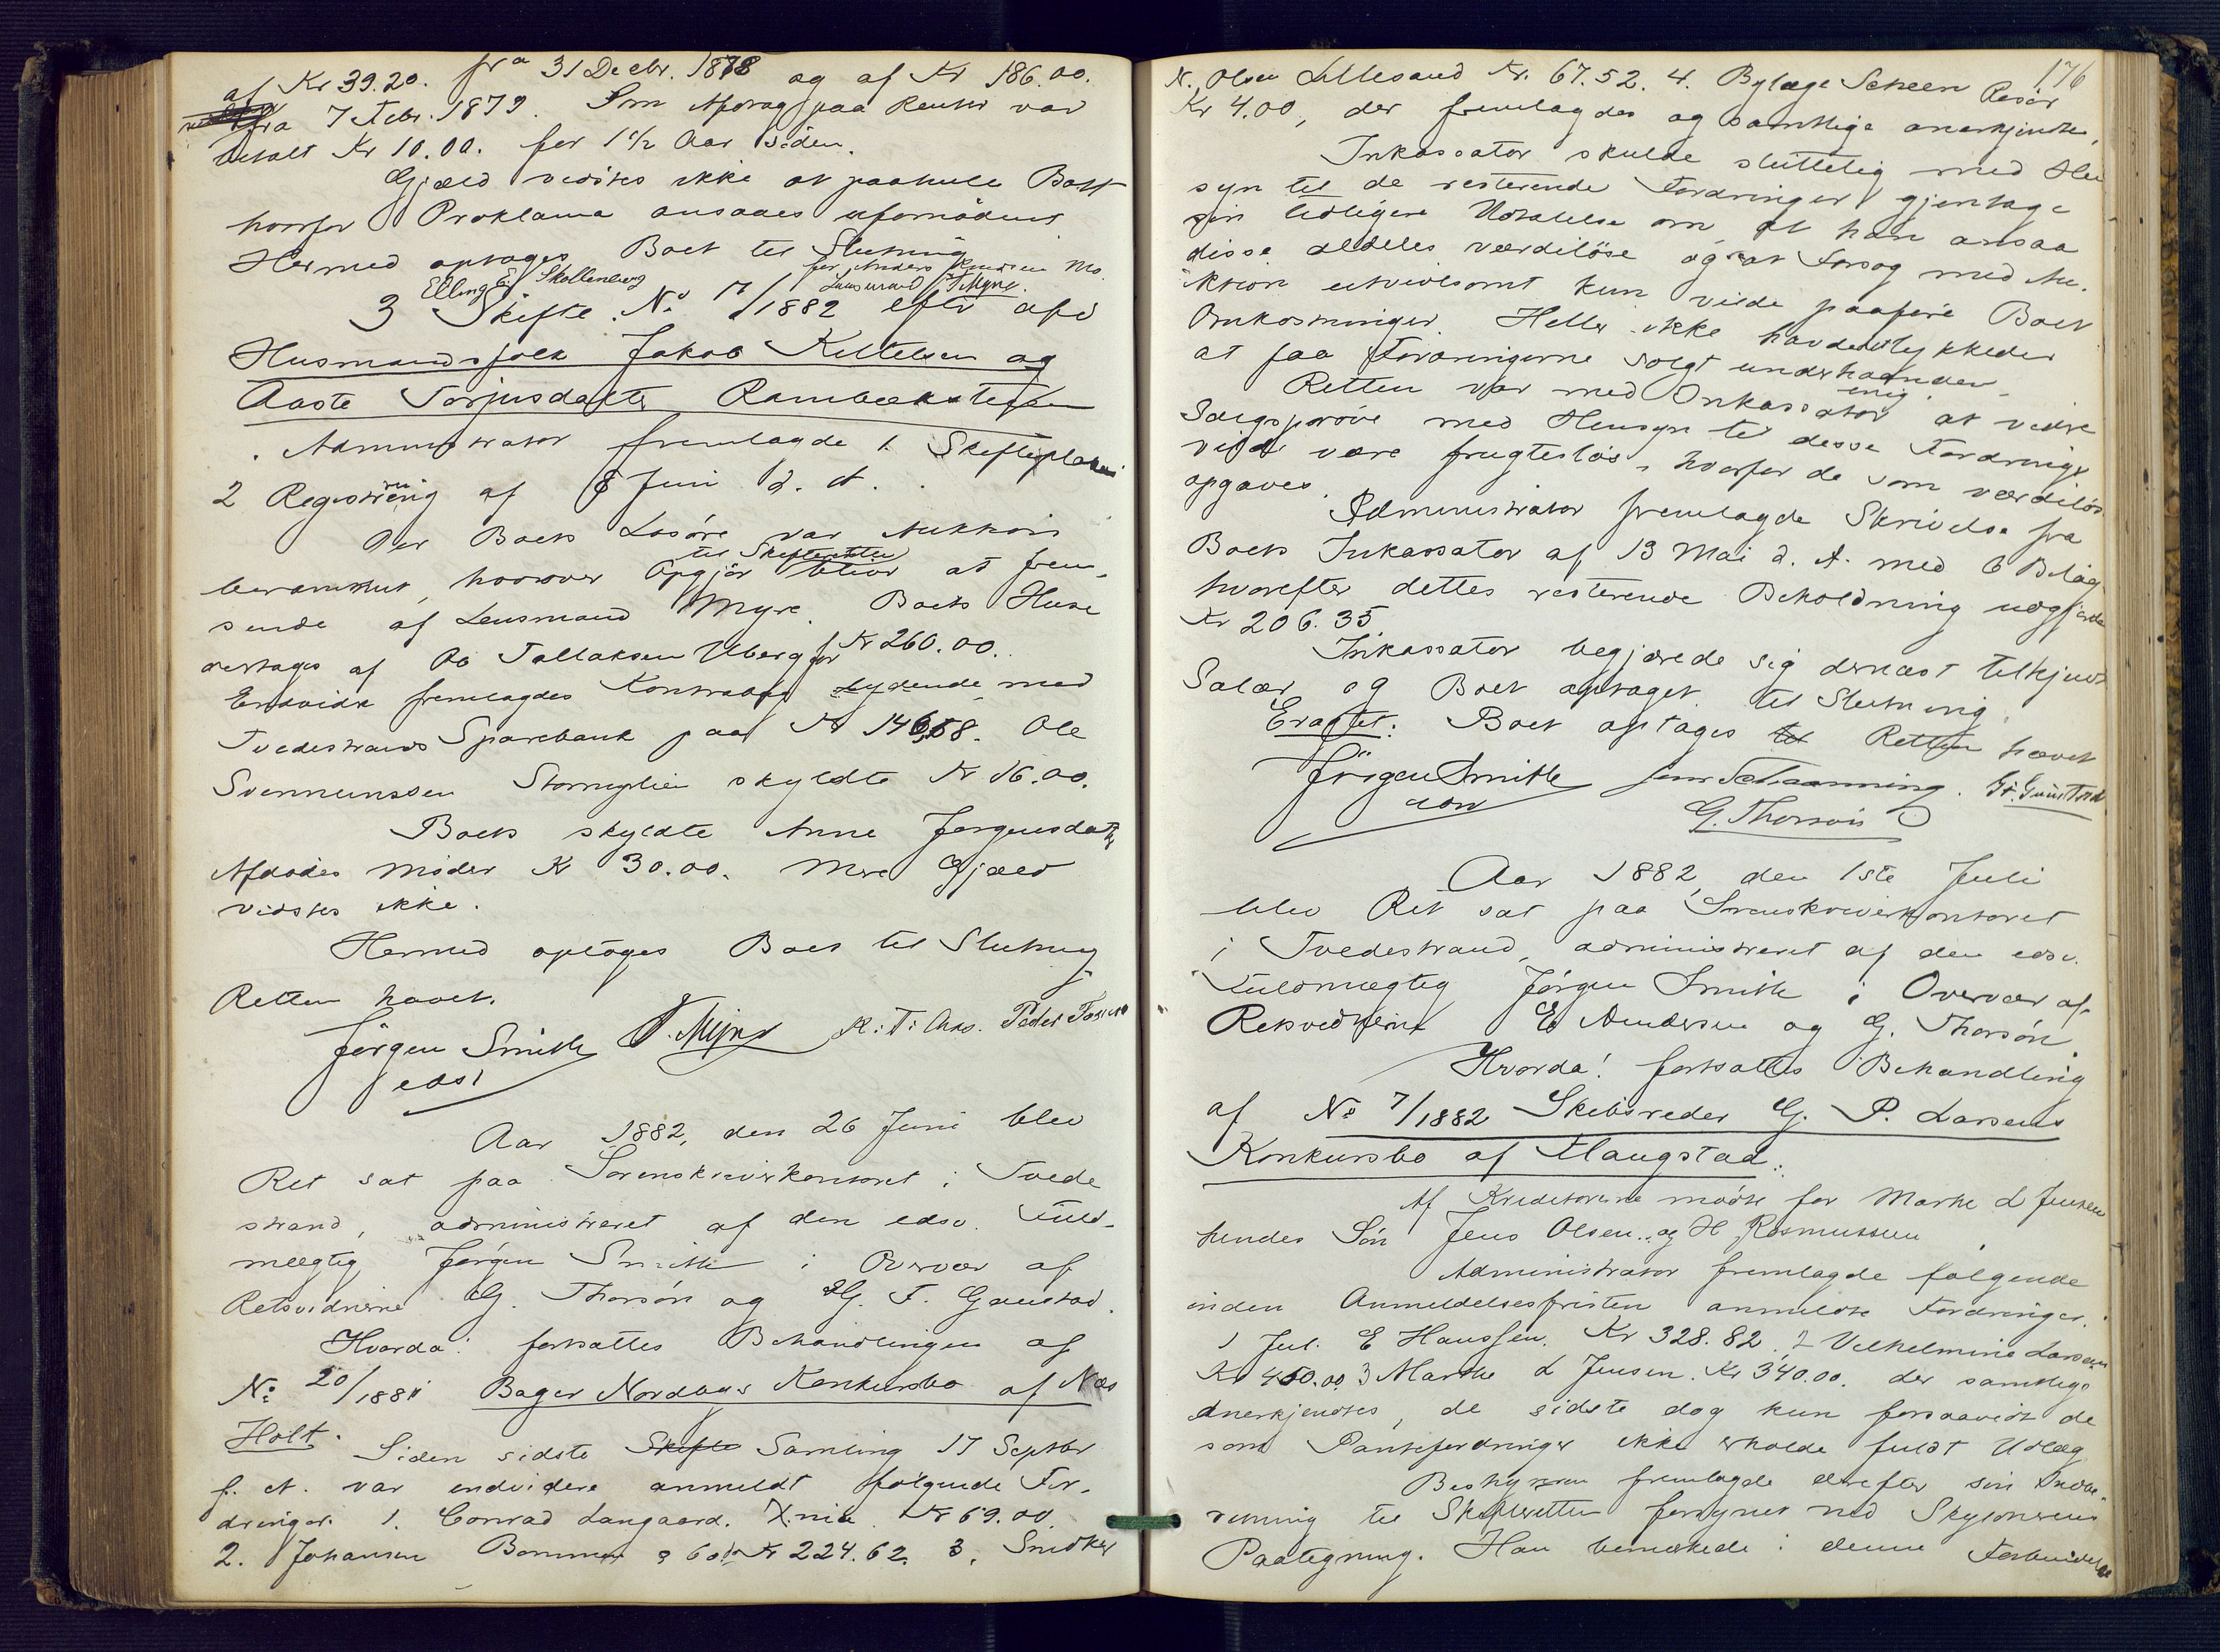 af Kr 39.20. fra 31 Decbr. 1878 og af Kr 186.00.
fra 7 Febr. 1879. Som Afdrag paa Renter var
betalt Kr 10.00. for 1 1/2 Aar siden.
Gjæld vidstes ikke at paahvile Boet
hvorfor Proklama ansaaes ufornødent
Hermed optoges Boet til Slutning
Elling E. Skollenborg for Anders Knudsen Mo.
Lensmand T. Myre.
3 Skifte No 17/1882 efter afd
Husmandsfolk Jakob Kittelsen og
Aaste Torjusdatter Rambækstejen
Administrator fremlagde 1. Skifteplakat
2 Registrering af 8 Juni d. A.
Over Boets Løsøre var Auktion
berammet, hvorover Opgjør til Skifteretten blive at frem-
sende af Lensmand Myre. Boets Huse
overtages af Ole Tallaksen Uberg for Kr 260.00.
Endvidere fremlagdes Kontrabog lydende med
Tvedestrands Sparebank paa Kr 146,58. Ole
Svennumssen skyldte Kr 16.00.
Boets skyldte Anne Jørgensdatter
Afdødes Moder Kr 30.00. Mere Gjæld
vidstes ikke.
Hermed optoges Boet til Slutning
Retten hævet.
Jørgen Smith T. Myre K. T. Aas. Peder
edsv
Aar 1882, den 26 Juni blev
Ret sat paa Sorenskriverkontoret i Tvede
strand, administreret af den edsv. Fuld-
mægtig Jørgen Smith i Overvær af
Retsvidnerne G. Thorsøn og G. T. Gaustad.
Hvorda: fortsattes Behandlingen af
No 20/1881 Bager Nordbys Konkursbo af Næs
Holt. Siden sidste Skifte Samling 17 Septbr
f. A. var endvidere anmeldt følgende For-
dringer. 1. Conrad Langaard. X.nia. Kr 69.00
2. Johansen Kr 224.62. 3. Snidker
176
N. Olsen Lillesand Kr. 67.52. 4. Bylæge Scheen Risør
Kr 4.00, der fremlagdes og samtlige anerkjendtes,
Inkassator skulde sluttelig med Hen
syn til de resterende Fordringer gjentage
sin tidligere Udtalelse om, at han ansaa
disse aldeles værdiløse og at Forsøg med Au-
ktion utvivlsomt kun vilde paaføre Boet
Omkostninger. Heller ikke havde det lykkedes
at faa Fordringerne solgt underhaanden.
Retten var med Inkassator enig at videre
Salgsprøve med Hensyn til disse Fordringer
vilde være frugtesløs, hvorfor de som værdiløs
opgaves.
Administrator fremlagde Skrivelse fra
Boets Inkassator af 13 Mai d. A. med 6 Bilag
hvorefter dettes resterende Beholdning udgjorde
Kr 206.35.
Inkassator begjærede sig dernæst tilkjendt
Salær og Boet optaget til Slutning.
Eragtet: Boet optages til Retten hævet
Jörgen Smith Jens Schanning. G. Gaustad
edsv G. Thorsøn
Aar 1882, den 1ste Juli
blev Ret sat paa Sorenskriverkontoret
i Tvedestrand, administreret af den edsv.
Fuldmægtig Jørgen Smith i Overvær af
Retsvidnerne E. Andersen og G. Thorsøn.
Hvorda! fortsattes Behandling
af No 7/1882 Skibsreder G. P. Larsens
Konkursbo af Flaugstad.
Af Kreditorerne mødte for Marthe L Jensen
hendes Søn Jens Olsen og H Rasmussen
Administrator fremlagde følgende
inden Anmeldelsesfristen anmeldte Fordringer.
1 Jul. E Hanssen. Kr 328.82. 2 Vilhelmine Larsen
Kr 450.00 3 Marthe L Jensen. Kr 340.00. der samtlige
anerkjendtes, de sidste dog kun forsaavidt de
som Pantefordringer ikke erholde fuldt Udlæg
Bestyreren fremlagde derefter sin Indbe-
retning til Skifteretten forsynet med Skyldnerens
Paategning. Han bemærkede i denne Forbindelse